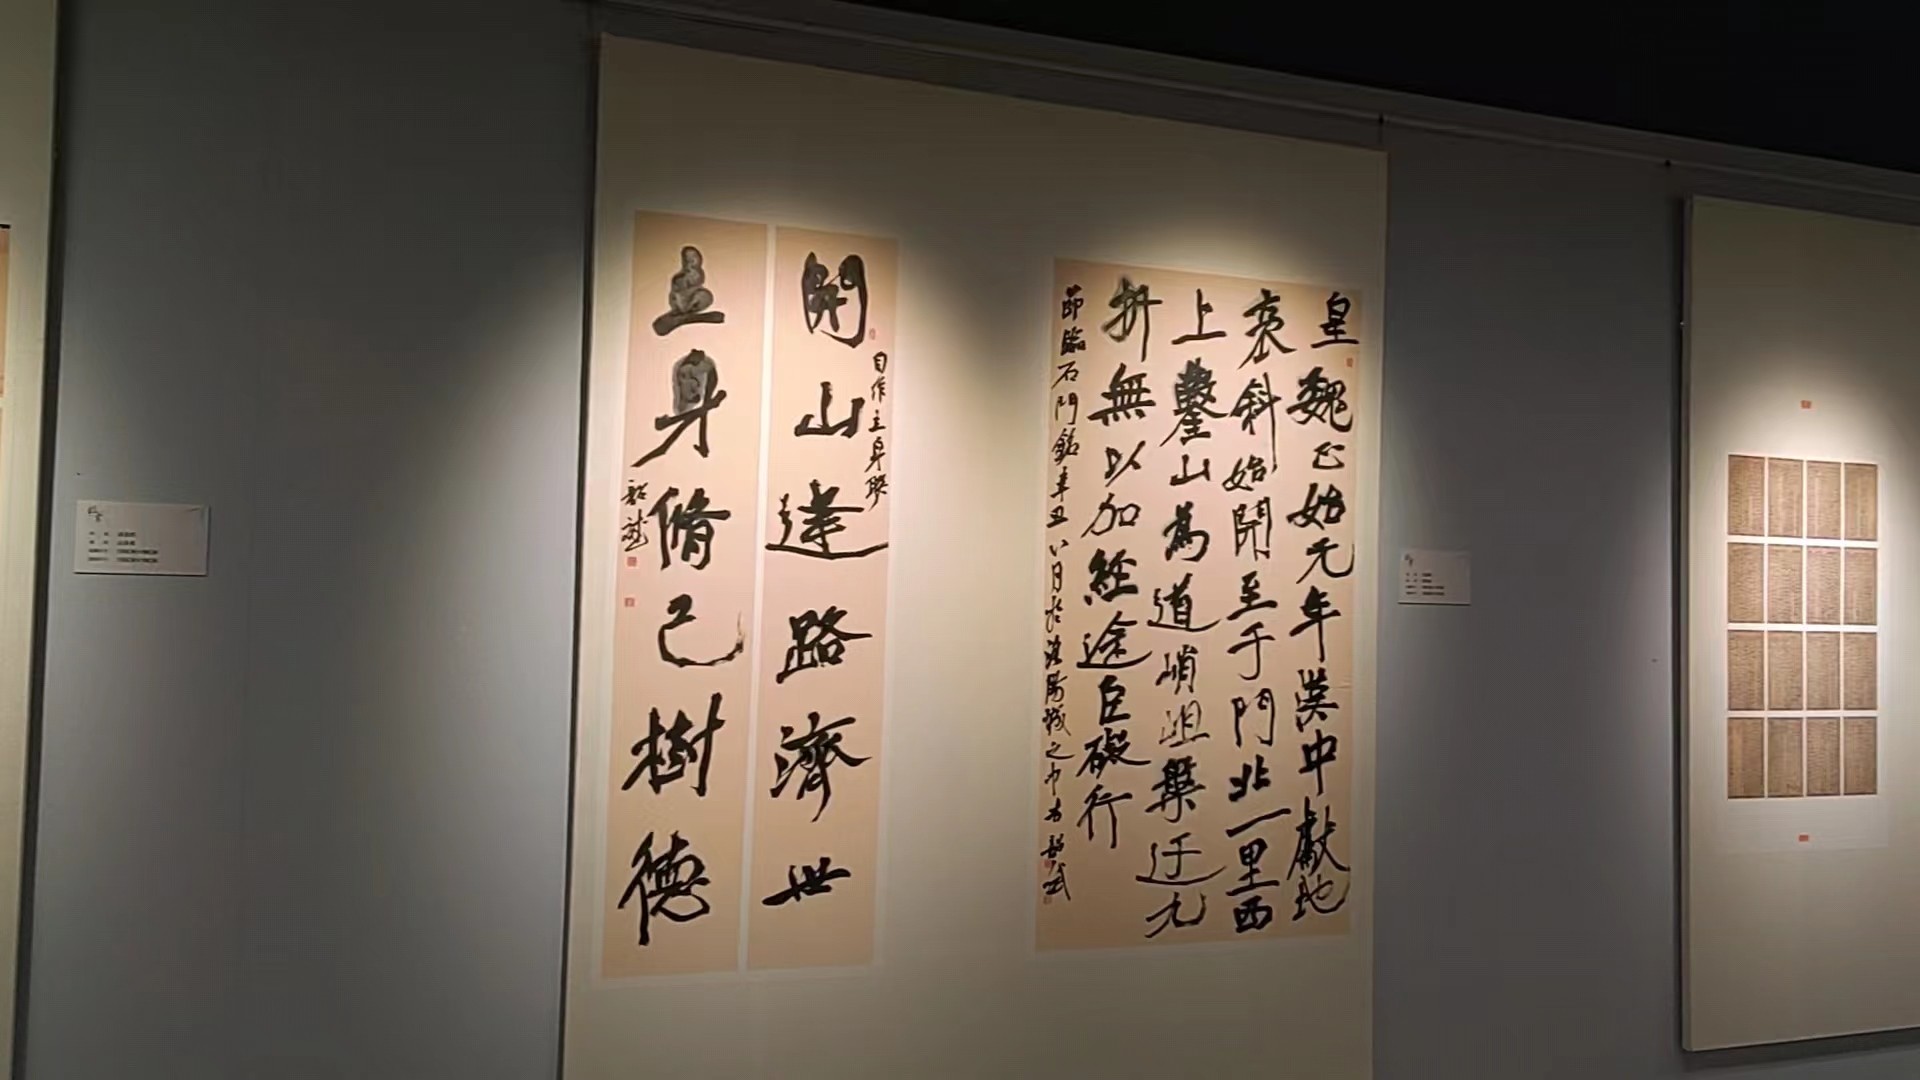 皇魏正始元年漢中獻地
襃斜始開至于門北一里西
上鑿山為道峭岨槃迂九
折無以加經途巨礙行
節臨石門銘辛丑八月於洛陽城之中
開山逢路濟世
自作立身聯
立身脩己樹德